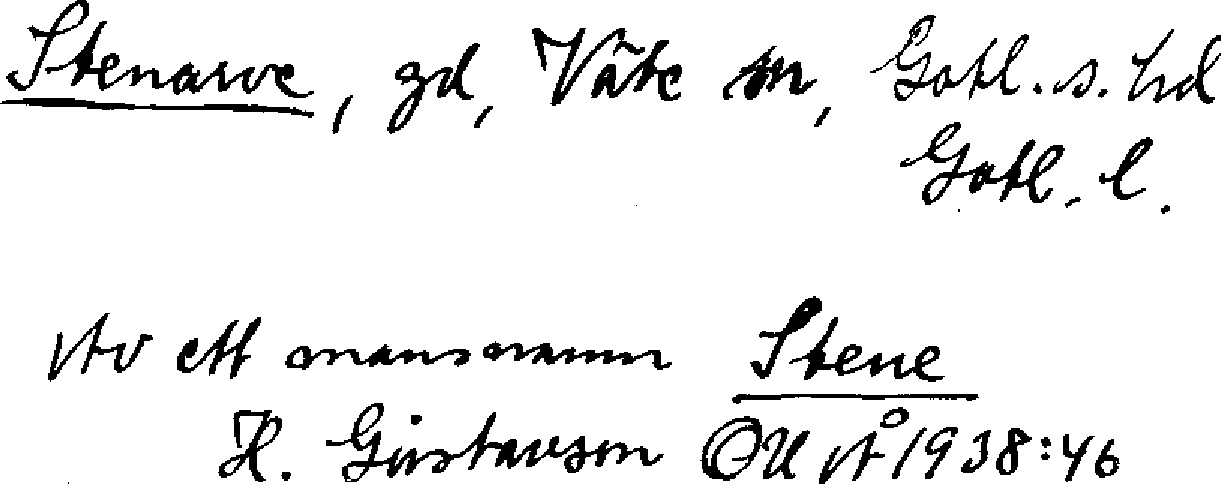 Stenarve, gd, Väte sn, Gotl. s. hd
Gotl. l.
Av ett mansnamn Stene
H. Gustavson OUÅ 1938:46